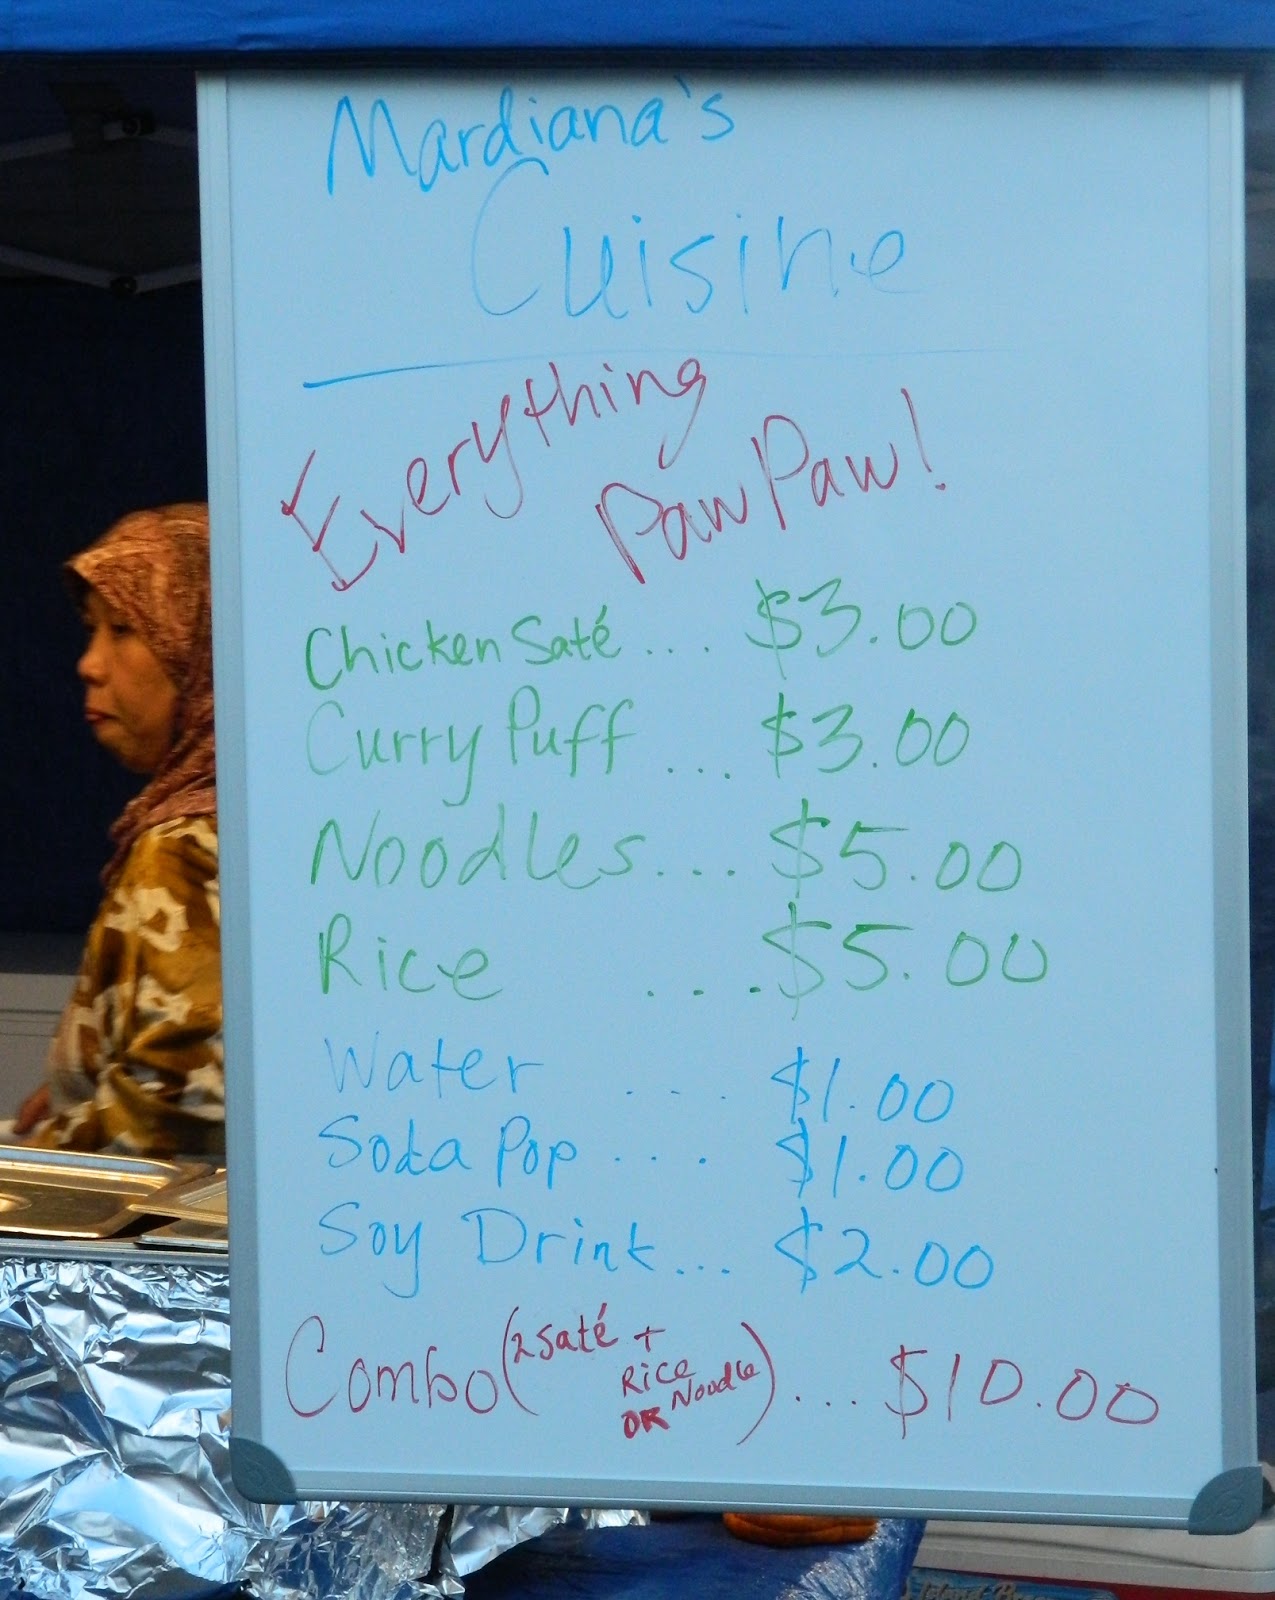 Mardiana's
Cuisine
Everything
PawPaw!
Chicken Saté .... $3.00
Curry Puff ... $3.00
Noodles... $5.00
Rice .... $5.00
Water ... $1.00
Soda Pop ... $1.00
Soy Drink... $2.00
Combo (2 Saté + Rice OR Noodle) ... $10.00
Island